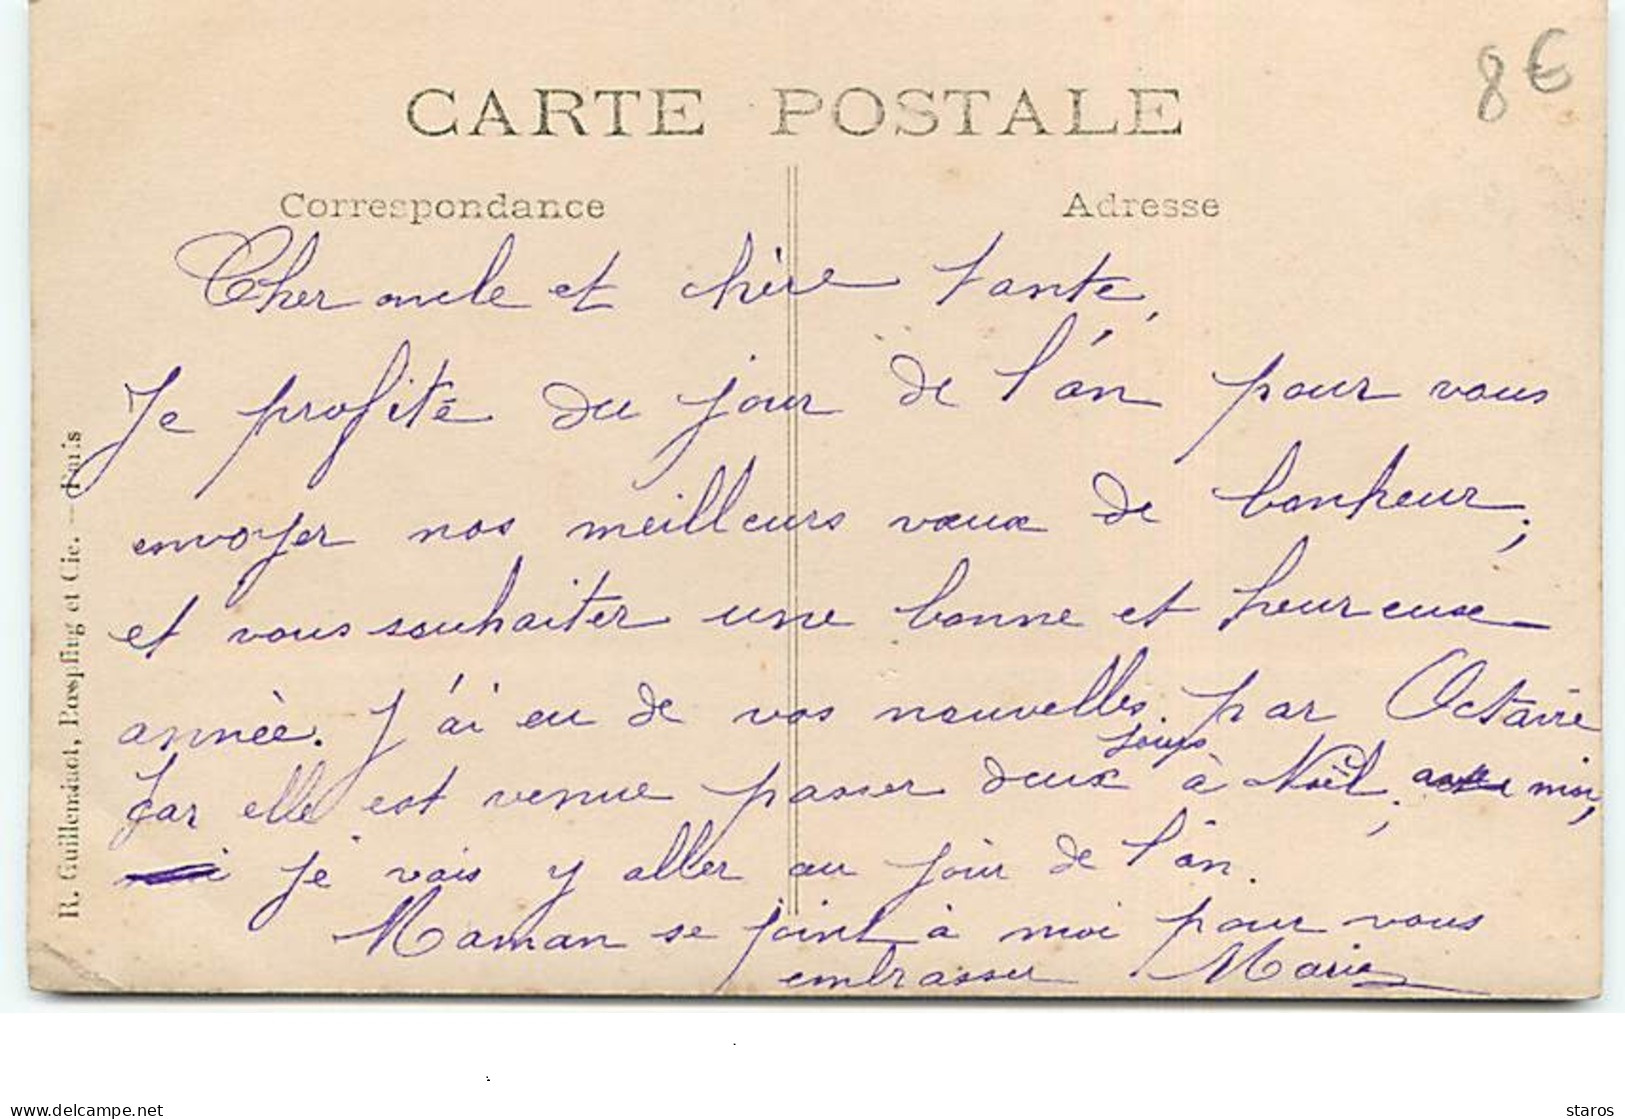 8€
CARTE POSTALE
Correspondance
Adresse
Cher oncle et chère tante,
Je profite du jour de l'an pour vous
envoyer nos meilleurs vœux de bonheur,
et vous souhaiter une bonne et heureuse
année. J'ai eu de vos nouvelles. par Octavie
jours
Car elle est venue passer deux à Noël, moi,
je vais y aller au jour de l'an.
Maman se joint à moi pour vous
embrasser Marie
R. Guilleminot, Bœspflug et Cie. — Paris
delcampe.net
staros